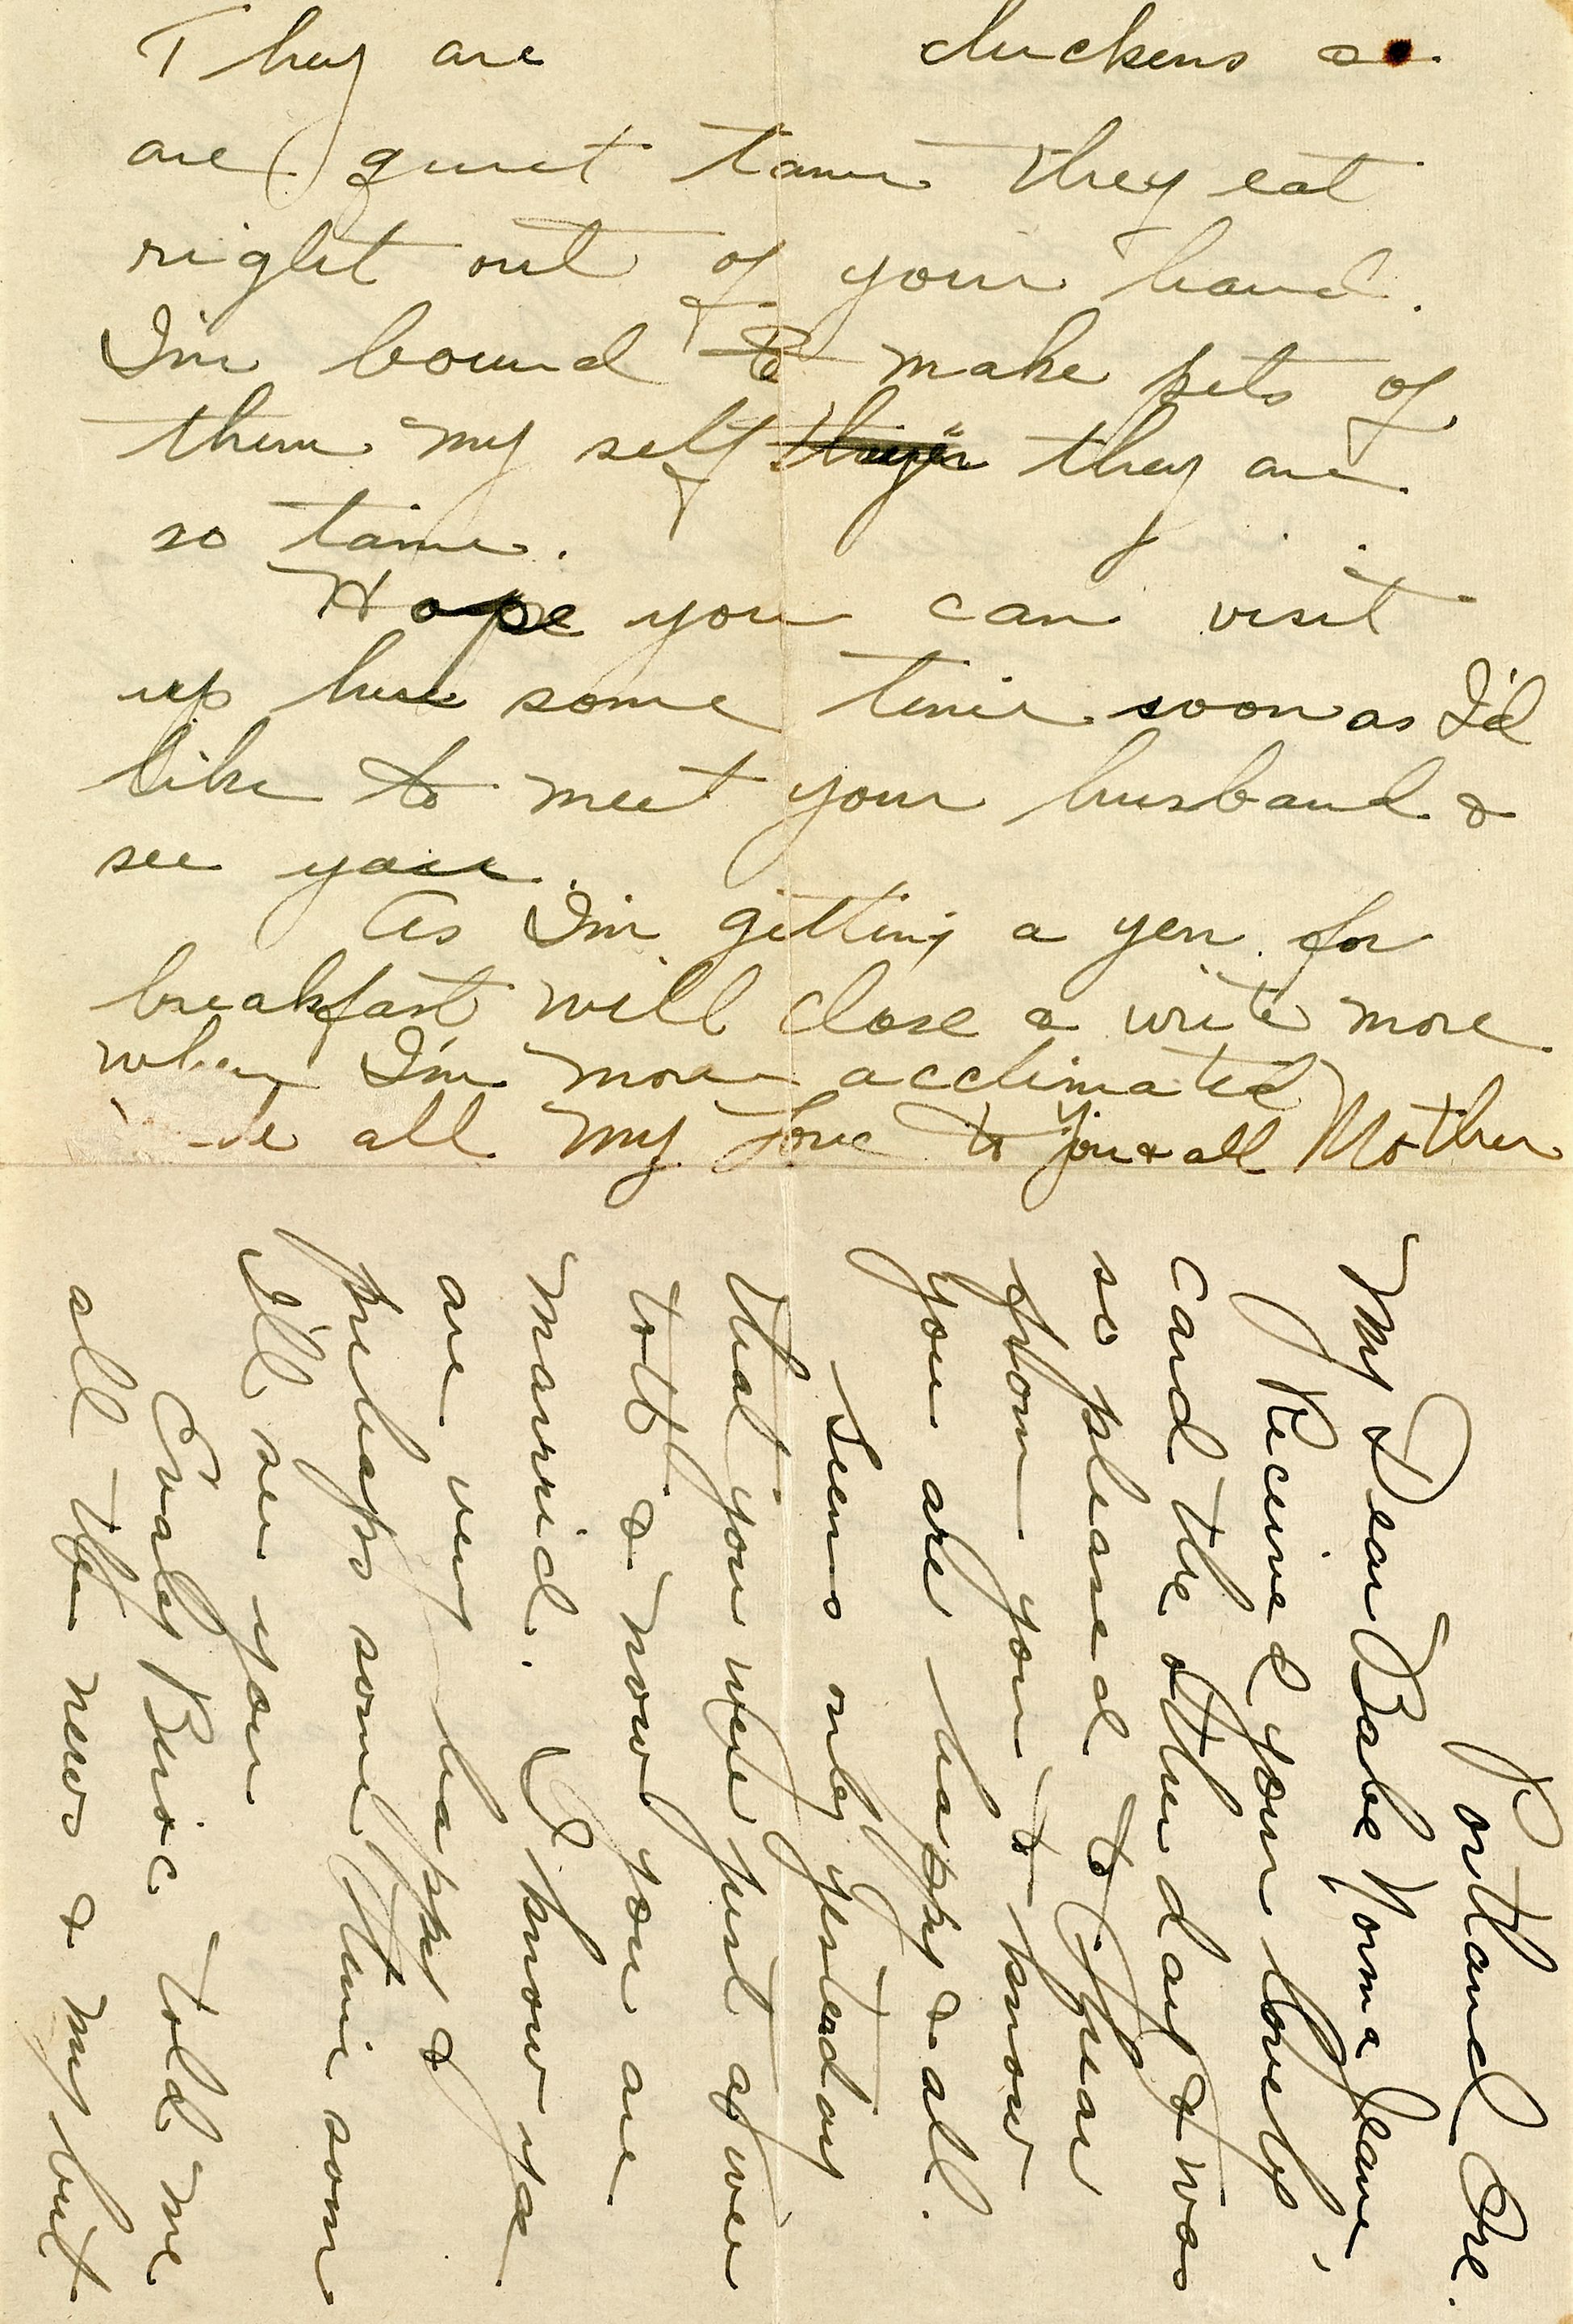 They are chickens &
are quiet tame they eat
right out of your hand.
I'm bound to make pets of
them my self they are
so tame.
Hope you can visit
up here some time soon as I'd
like to meet your husband &
see you.
As I'm getting a yen for
breakfast will close & write more
when I'm more acclimated
all my love to you & all Mother
Portland Ore.
My Dear Babe Norma Jeane,
Received your lovely
card the other day & was
so pleased to hear
from you & to know
you are happy & all.
Seems only yesterday
that you were just a wee
tott & now you are
married. I know you
are very happy &
perhaps some time soon
I'll see you
told me
all the news & my but